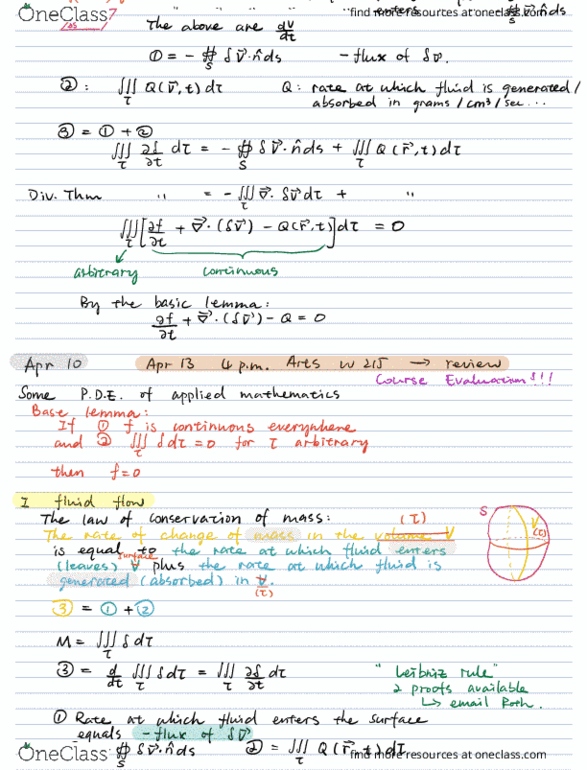 OneClass
find more resources at oneclass.com
enters
∯ v⃗·n̂ ds
The above are dv/dt
① = - ∯_S δ v⃗·n̂ds - flux of δv⃗.
②: ∭_τ Q(v⃗,t)dτ Q: rate at which fluid is generated/
absorbed in grams/cm³/sec...
③ = ① + ②
∭_τ ∂δ/∂t dτ = - ∯_S δ v⃗·n̂ds + ∭_τ Q(r⃗,t)dτ
Div. Thm " = - ∭_τ ∇⃗· δv⃗dτ + "
∭_τ [∂f/∂t + ∇⃗·(δv⃗) - Q(r⃗,t)]dτ = 0
arbitrary continuous
By the basic lemma:
∂f/∂t + ∇⃗·(δv⃗) - Q = 0
Apr 10 Apr 13 4 p.m. Arts W 215 → review
Course Evaluation!!!
Some P.D.E. of applied mathematics
Base lemma:
If ① f is continuous everywhere
and ② ∭_τ δdτ = 0 for τ arbitrary
then f=0
I fluid flow
The law of conservation of mass: (τ)
The rate of change of mass in the volume V
is equal to the rate at which fluid enters
surface
(leaves) V plus the rate at which fluid is
generated (absorbed) in V.
(τ)
S
V
(τ)
③ = ① + ②
M = ∭_τ δdτ
③ = d/dt ∭_τ δdτ = ∭_τ ∂δ/∂t dτ
" Leibniz rule"
2 proofs available
↳ email Roth.
① Rate at which fluid enters the surface
equals -flux of δv⃗
∯_S δv⃗·n̂ds ② = ∭_τ Q(r⃗,t)dτ
OneClass
find more resources at oneclass.com